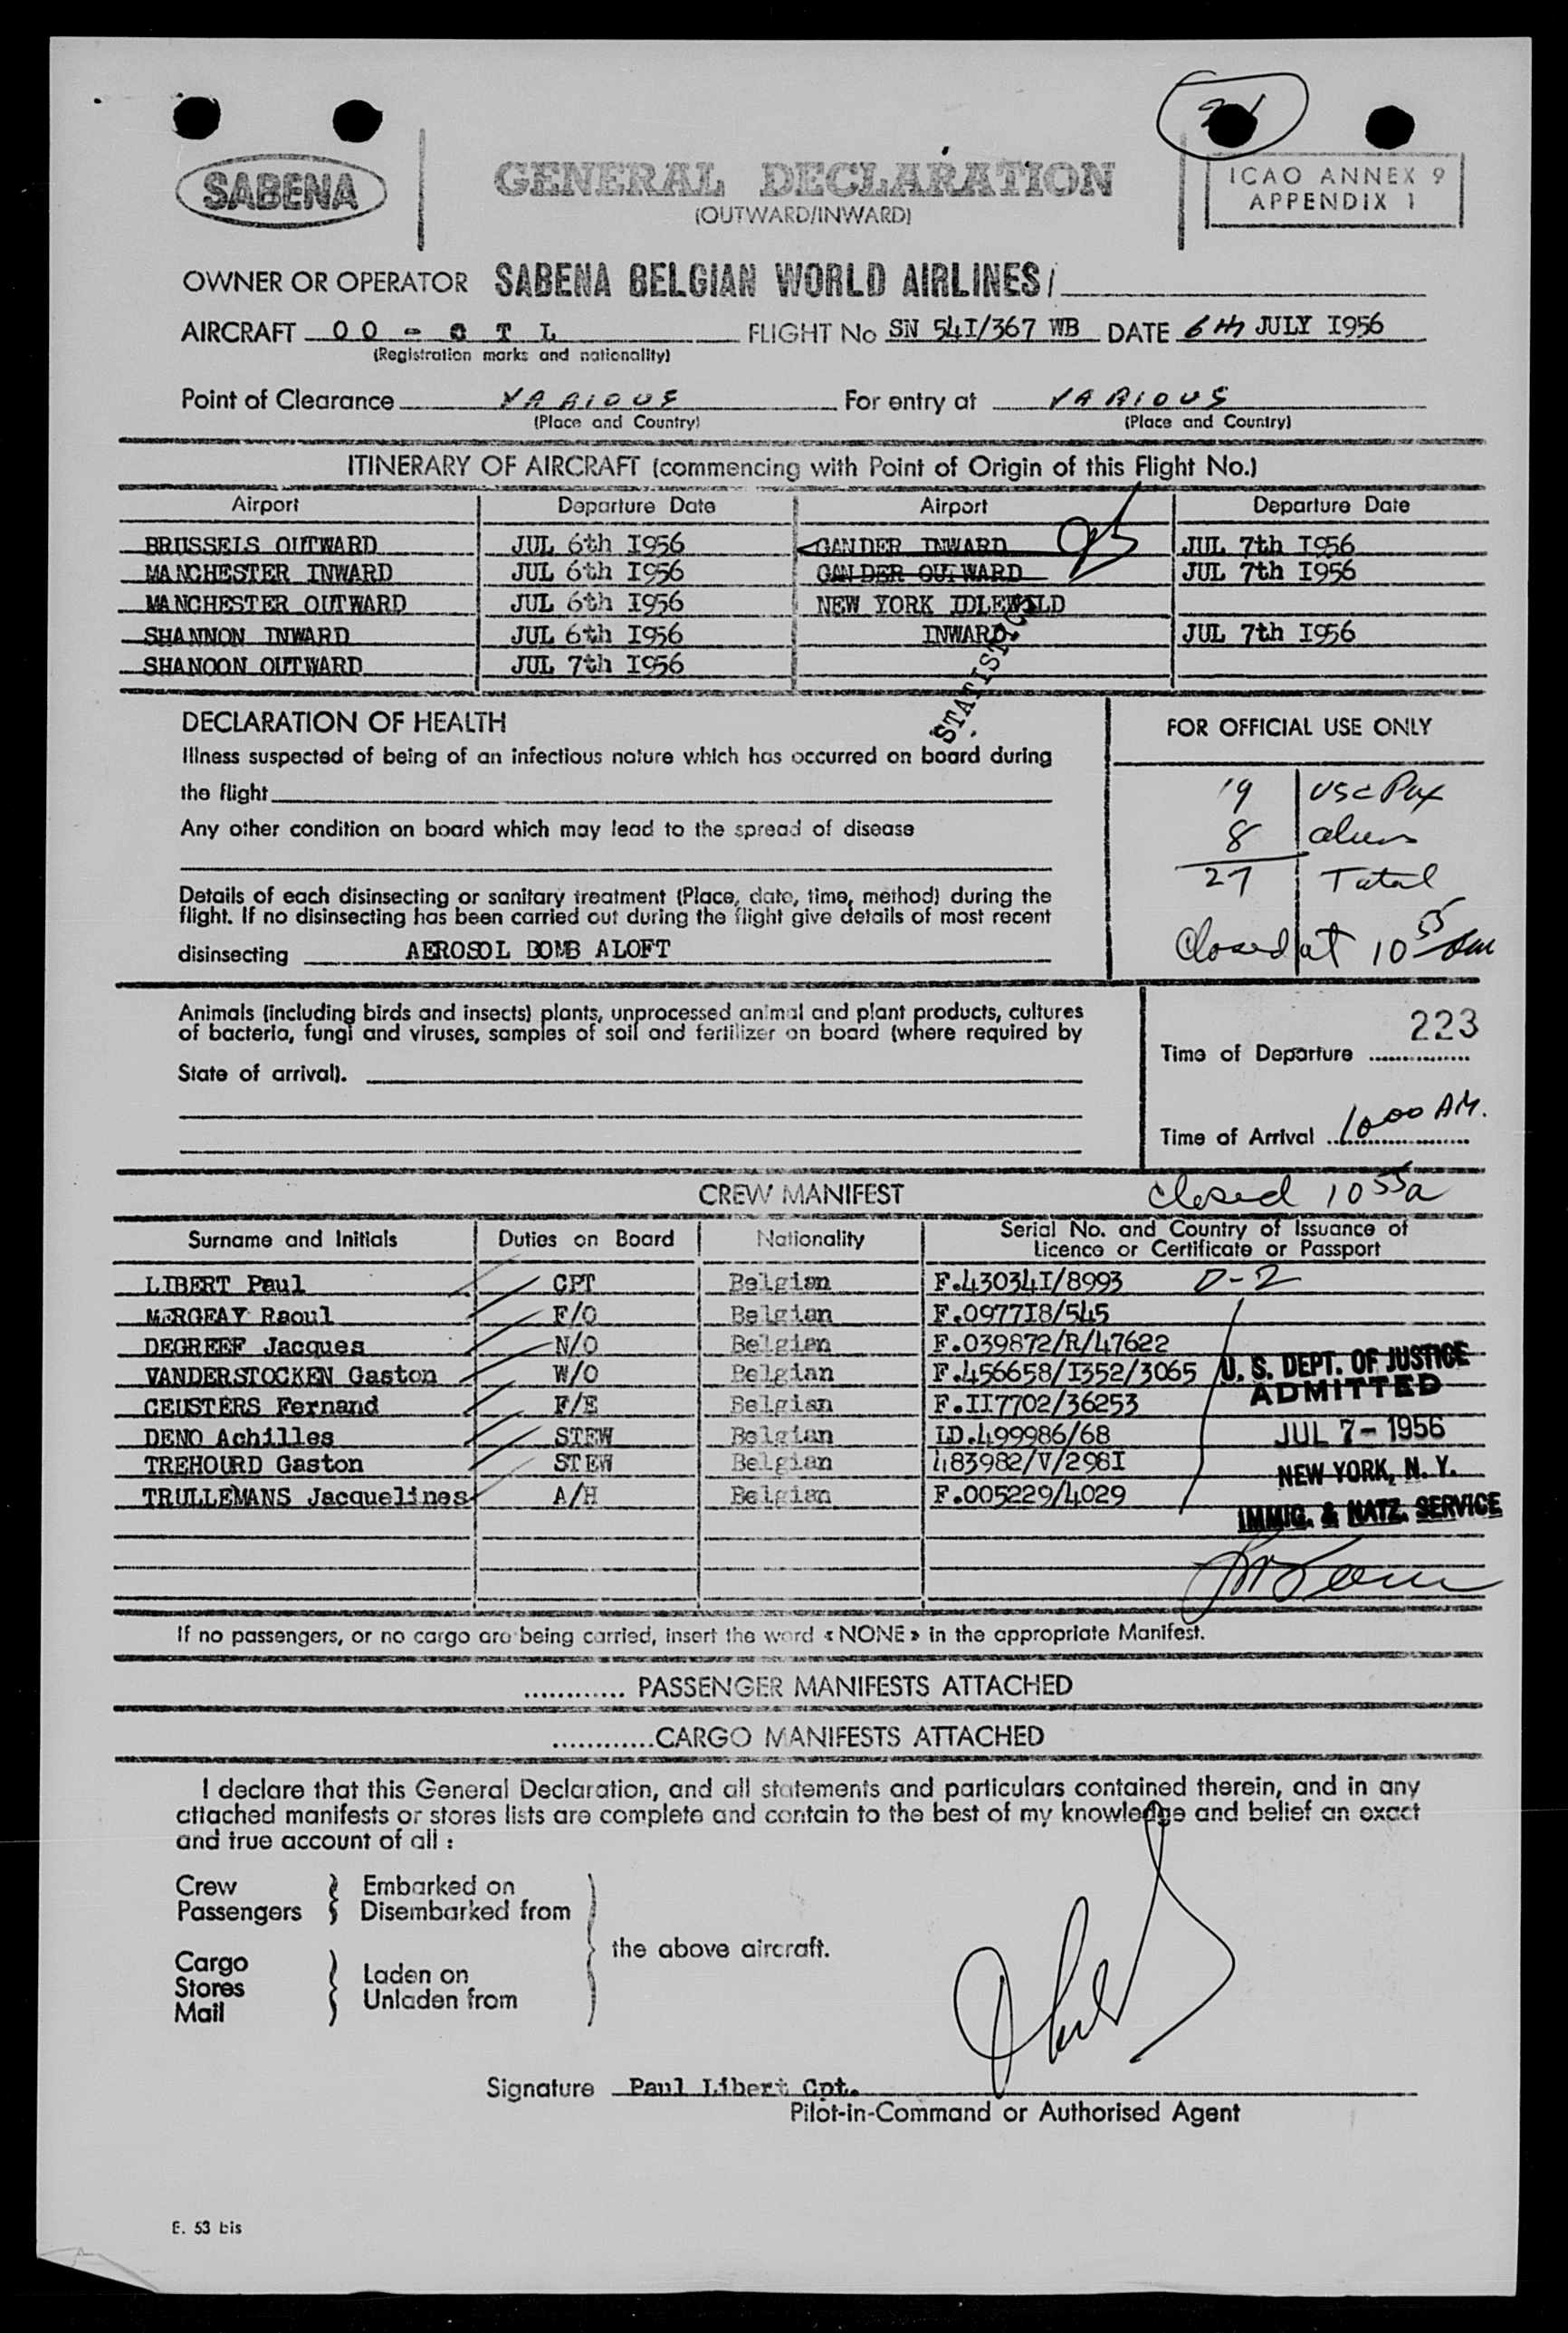 SABENA
GENERAL DECLARATION
(OUTWARD/INWARD)
ICAO ANNEX 9
APPENDIX 1
OWNER OR OPERATOR SABENA BELGIAN WORLD AIRLINES/
AIRCRAFT OO - C T L FLIGHT No SN 54I/367 WB DATE 6th JULY I956
(Registration marks and nationality)
Point of Clearance VARIOUS For entry at VARIOUS
(Place and Country) (Place and Country)
ITINERARY OF AIRCRAFT (commencing with Point of Origin of this Flight No.)
Airport Departure Date Airport Departure Date
BRUSSELS OUTWARD JUL 6th I956 GANDER INWARD JUL 7th I956
MANCHESTER INWARD JUL 6th I956 GANDER OUTWARD JUL 7th I956
MANCHESTER OUTWARD JUL 6th I956 NEW YORK IDLEWILD
SHANNON INWARD JUL 6th I956 INWARD JUL 7th I956
SHANOON OUTWARD JUL 7th I956
STATISTICS
DECLARATION OF HEALTH
FOR OFFICIAL USE ONLY
Illness suspected of being of an infectious nature which has occurred on board during
the flight
19 USC Pax
Any other condition on board which may lead to the spread of disease
8 aliens
27 Total
Details of each disinsecting or sanitary treatment (Place, date, time, method) during the
flight. If no disinsecting has been carried out during the flight give details of most recent
disinsecting AEROSOL BOMB ALOFT
Closed at 10 55 am
Animals (including birds and insects) plants, unprocessed animal and plant products, cultures
of bacteria, fungi and viruses, samples of soil and fertilizer on board (where required by
State of arrival).
223
Time of Departure
Time of Arrival 10 00 AM.
CREW MANIFEST
closed 10 55a
Surname and Initials Duties on Board Nationality Serial No. and Country of Issuance of
Licence or Certificate or Passport
LIBERT Paul CPT Belgian F.43034I/8993 D-2
MERGEAY Raoul F/O Belgian F.0977I8/545
DEGREEF Jacques N/O Belgian F.039872/R/47622
VANDERSTOCKEN Gaston W/O Belgian F.456658/I352/3065
CEUSTERS Fernand F/E Belgian F.II7702/36253
DENO Achilles STEW Belgian ID.499986/68
TREHOURD Gaston STEW Belgian 483982/V/298I
TRULLEMANS Jacquelines A/H Belgian F.005229/4029
U. S. DEPT. OF JUSTICE
ADMITTED
JUL 7 - 1956
NEW YORK, N. Y.
IMMIG. & NATZ. SERVICE
If no passengers, or no cargo are being carried, insert the word « NONE » in the appropriate Manifest.
............ PASSENGER MANIFESTS ATTACHED
............CARGO MANIFESTS ATTACHED
I declare that this General Declaration, and all statements and particulars contained therein, and in any
attached manifests or stores lists are complete and contain to the best of my knowledge and belief an exact
and true account of all :
Crew Embarked on
Passengers Disembarked from
the above aircraft.
Cargo
Stores Laden on
Mail Unladen from
Signature Paul Libert Cpt.
Pilot-in-Command or Authorised Agent
E. 53 bis